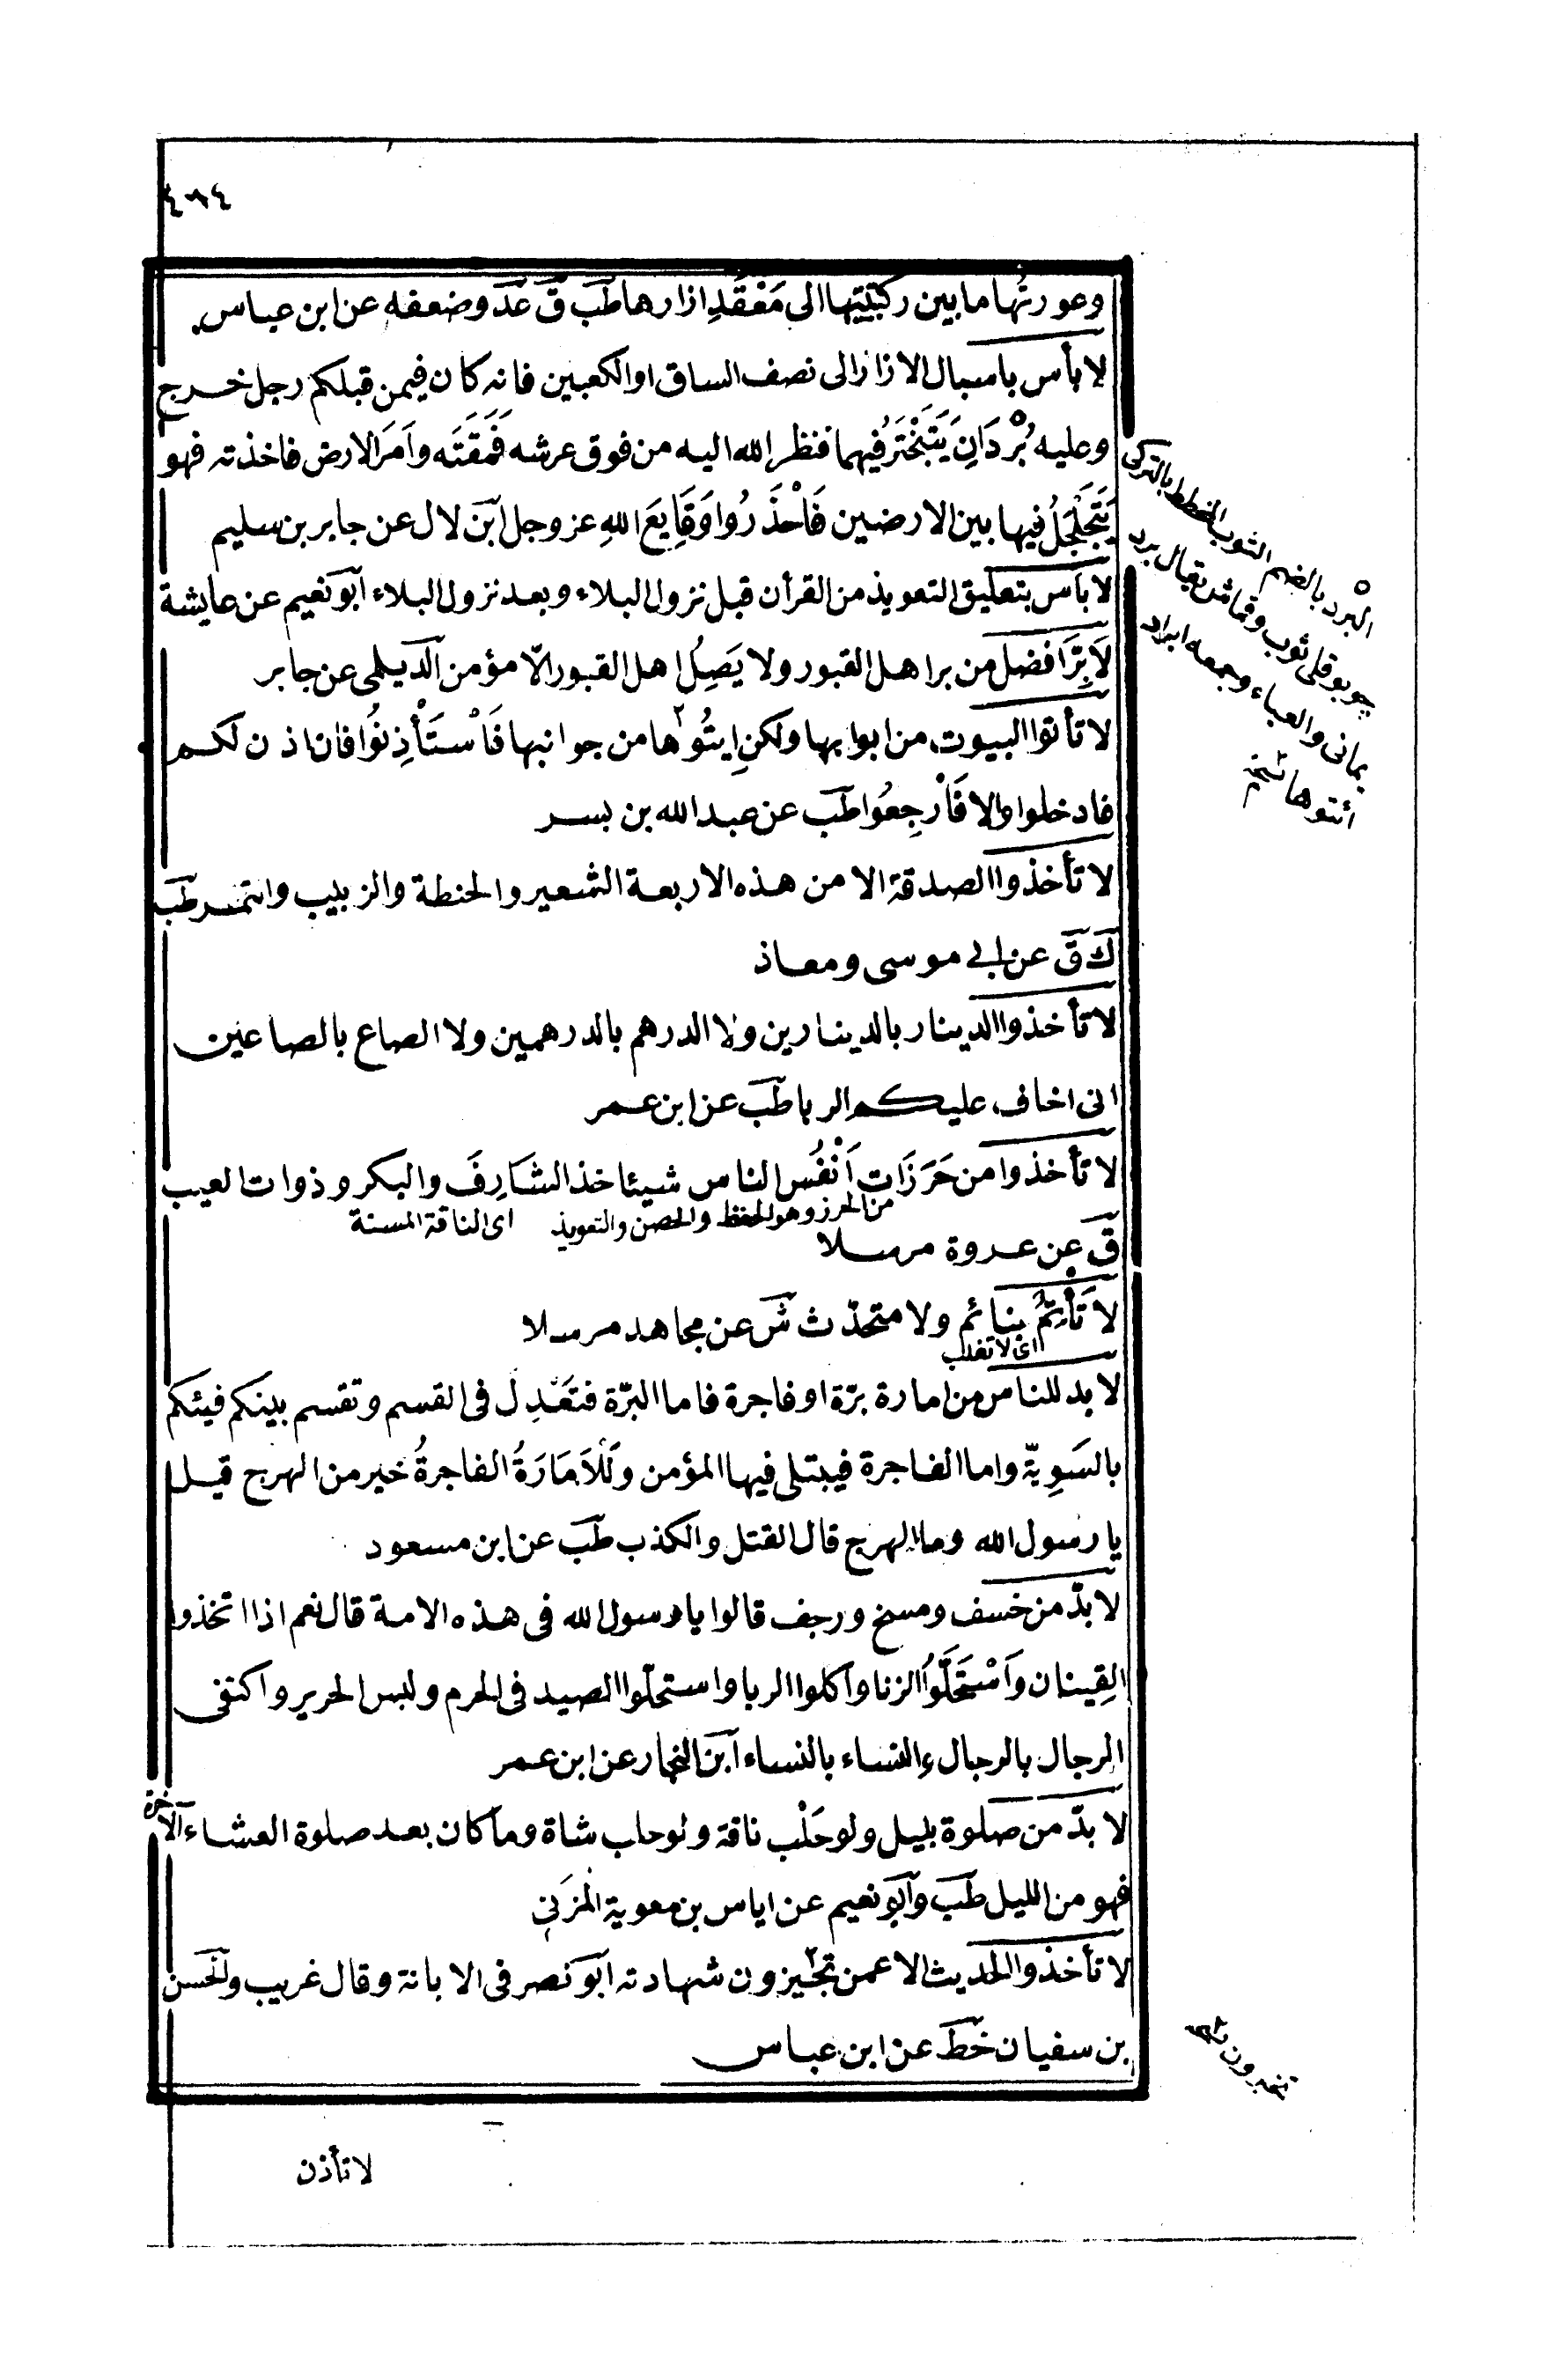 ٤٨٤
وعورتُها ما بين ركبتيها الى مَعْقَدِ ازارها طب ق عد وضعفه عن ابن عباس
لا بأس باسبال الازار الى نصف الساق او الكعبين فانه كان فيمن قبلكم رجل خرج
وعليه بُرْدَانِ يَتَبَخْتَرُ فيهما فنظر الله اليه من فوق عرشه فَمَقَتَه واَمَرَ الارض فاخذته فهو
يَتَجَلْجَلُ فيها بين الارضين فَاحْذَرُوا وَقَايِعَ اللهِ عز وجل ابن لال عن جابر بن سليم
لا بأس بتعليق التعويذ من القرأن قبل نزول البلاء وبعد نزول البلاء ابو نعيم عن عايشة
لَا بِرَّ افضل من بر اهل القبور ولا يَصِلُ اهل القبور الّا مؤمن الديلمى عن جابر
لا تأتوا البيوت من ابوابها ولكن اِيتُوها من جوانبها فَاسْتَأْذِنُوا فان اذن لكم
فادخلوا والا فَاْرجِعُوا طب عن عبد الله بن بسر
لا تأخذوا الصدقة الا من هذه الاربعة الشعير والحنطة والزبيب والتمر طب
ك ق عن ابى موسى ومعاذ
لا تأخذوا الدينار بالدينارين ولا الدرهم بالدرهمين ولا الصاع بالصاعين
انى اخاف عليكم الربا طب عن ابن عمر
لا تأخذوا من حَرَزَاتِ اَنْفُسِ الناس شيئا خذ الشَارِفَ والبكر وذوات العيب
من الحرز وهو الحفظ والحصن والتعويذ اى الناقة المسنة
ق عن عروة مرسلا
لا تَأْتَمَّ بنائم ولا متحدّث ش عن مجاهد مرسلا
لا بد للناس من امارة برّة او فاجرة فاما البرّة فتَعْدِل فى القسم وتقسم بينكم فيئكم
بالسَوِيّة واما الفاجرة فيبتلى فيها المؤمن وَلَلْاَمَارَةُ الفاجرةُ خير من الهرج قيل
يا رسول الله وما الهرج قال القتل والكذب طب عن ابن مسعود
لا بدّ من خسف ومسخ ورجف قالوا يا رسول الله فى هذه الامة قال نعم اذا اتخذوا
القِينان وَاسْتَحَلُّوا الزنا واكلوا الربا واستحلّوا الصيد فى الحرم ولبس الحرير واكتفى
الرجال بالرجال والنساء بالنساء ابن النجار عن ابن عمر
لا بدّ من صلوة بليل ولو حَلْب ناقة ولو حلب شاة وما كان بعد صلوة العشاء الآخرة
فهو من الليل طب وابو نعيم عن اياس بن معوية المزَنى
لا تأخذوا الحديث الا عمن تجيزون شهادته ابو نصر فى الابانة وقال غريب والحسن
بن سفيان خط عن ابن عباس
لا تأذن
البرد بالضم الثوب المخطط بالتركى
ثوب وقماش يقال برد
يمانى والعباء وجمعه ابراد
ائتوها نسخه